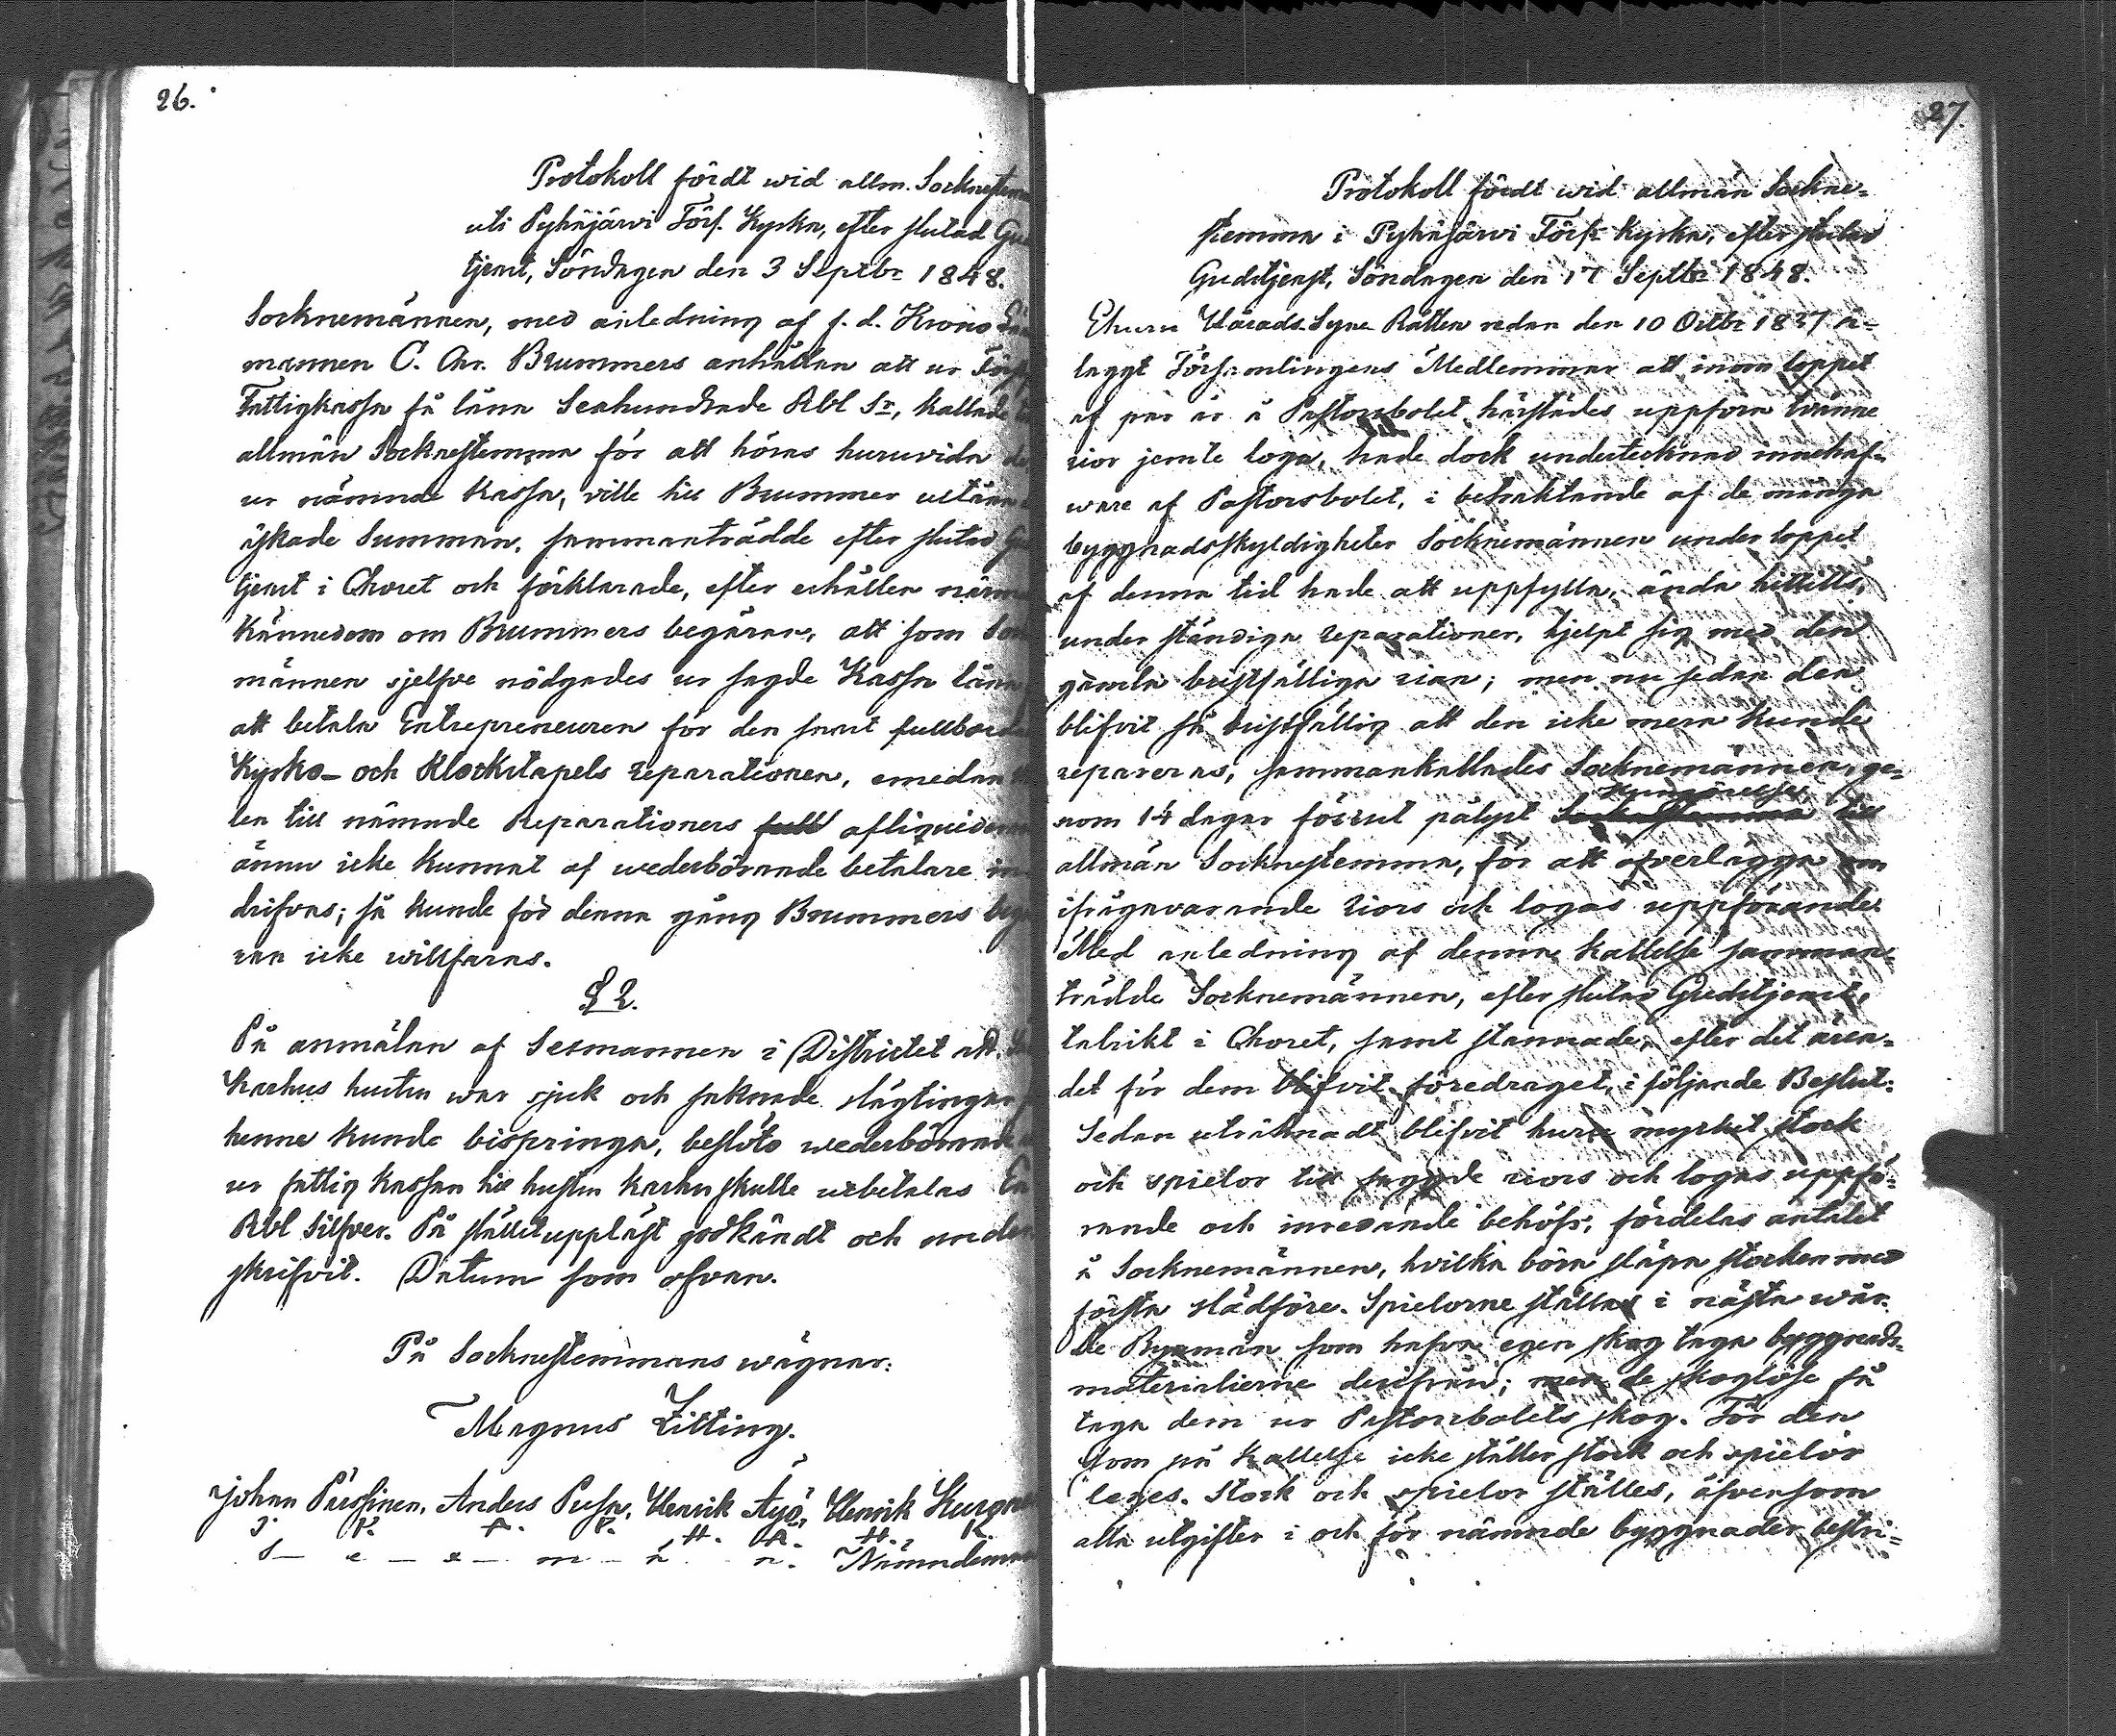 26.
Protokoll fördt wid allm. Sockne
uti Pyhäjärvi Förs. Kyrka, efter slutad Gu
tjenst, Söndagen den 3 Septbr 1848.
Socknemännen, med anledning af f. d. Krono
mannen C. Chr. Brummers anhållan att ur
Fattigkassa få låna Sexhundrade Rbl Sr, kallade
allmän Socknestemma för att höras huruvida
ur nämnde Kassa, ville till Brummer utlåna
äskade Summan, sammanträdde efter slutad
tjenst i Choret och förklarade, efter erhållen
kännedom om Brummers begäran, att som
männen sjelfve nödgades ur sagde Kassa låna
att betala Entrepreneuren för den samt
Kyrko- och Klockstapels reparationen, emedan
len till nämnde Reparationers full afliquide
ännu icke kunnat af wederbörande betalare in
drifvas; så kunde för denna gång Brummers beg
ran icke willfaras.
§ 2.
På anmälan af Sexmannen i Districtet att
Karhus hustru war sjuk och saknade slägtingar
henne kunde bispringa, beslöto wederbörande
ur fattig Kassan till hustru Karhu skulle utbetalas
Rbl Silfver. På stället uppläst godkändt och under
skrifvit. Datum som ofvan.
På Socknestemmans wägnar:
Magnus Zitting.
Johan Pässinen, Anders Pusa, Henrik Äyö, Henrik
J. P. A. P. H. Ä. H. K.
S — e — x — m — ä n. Nämndeman
27.
Protokoll fördt wid allmän Sockne-
stemma i Pyhäjärvi Förs. Kyrka, efter slutad
Gudstjenst, Söndagen den 17 Septbr 1848.
Ehuru Härads Syne Rätten redan den 10 Octbr 1837 å-
laggt Församlingens Medlemmar att inom loppet
af par år å Pastorsbolet härstädes uppföra twänne
rior jemte loga, hade dock undertecknad innehaf-
ware af Pastorsbolet, i betraktande af de många
byggnadsskyldigheter Socknemännen under loppet
af denna tid hade att uppfylla, ända hittills,
under ständiga reparationer, hjelpt sig med den
gamla bristfälliga rian; men nu sedan den
blifvit så bristfällig att den icke mera kunde
repareras, sammankallades Socknemännen, ge-
nom 14 dagar förrut pålyst Kungörelse till
allmän Socknestemma, för att öfverlägga om
ifrågavarande riors och logas uppförande.
Med anledning af denna kallelse samman-
trädde Socknemännen, efter slutad Gudstjenst,
talrikt i Choret, samt stannade, efter det ären-
det för dem blifvit föredraget, i följande Beslut:
Sedan uträknadt blifvit huru myrket stock
och spielor till sagde riors och logas uppfö-
rande och inredande behöfs, fördelas antalet
å Socknemännen, hvilka böra släpa stocken med
första slädföre. Spielorne ställas i nästa wår.
De Byamän som hafva egen skog taga byggnads-
materialierne derifrån; men de skoglöse få
taga dem ur Pastorsbolets skog. För den
som på kallelse icke ställer stock och spielor
leges. Stock och spielor ställes, äfvensom
alla utgifter i och för nämnde byggnader bestri-